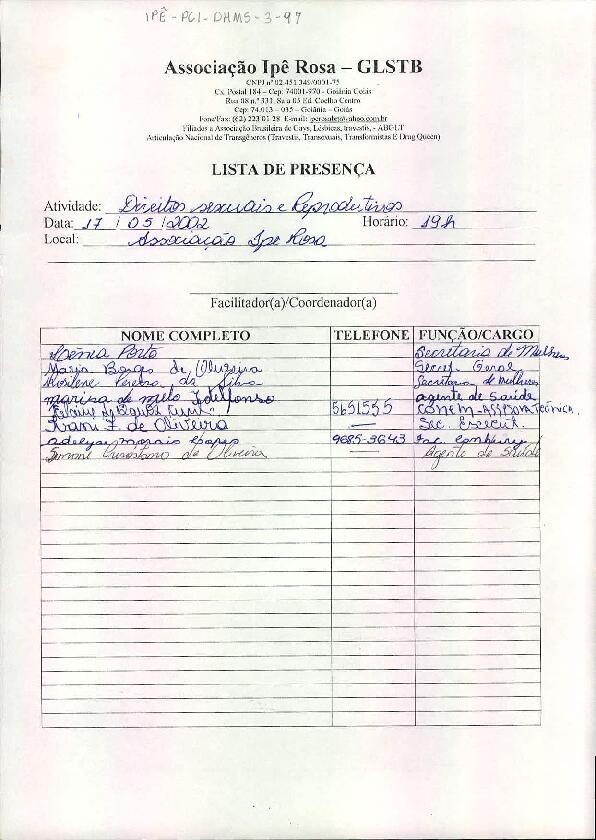 IPÊ-PCI-DHMS-3-97
Associação Ipê Rosa – GLSTB
CNPJ nº 02.451.349/0001-75
Cx. Postal 184 – Cep: 74001-970 - Goiânia Goiás
Rua 08 n.º 331, Sala 05 Ed. Coelho Centro
Cep: 74.013 – 035 – Goiânia – Goiás
Fone/Fax: (62) 223 01 28 E-mail: iperosabr@yahoo.com.br
Filiados a Associação Brasileira de Gays, Lésbicas, travestis, - ABGLT
Articulação Nacional de Transgêneros (Travestis, Transexuais, Transformistas E Drag Queen)
LISTA DE PRESENÇA
Atividade: Direitos sexuais e Reprodutivos
Data: 17 / 05 / 2002 Horário: 19h
Local: Associação Ipe Rosa
Facilitador(a)/Coordenador(a)
NOME COMPLETO TELEFONE FUNÇÃO/CARGO
Porto Secretaria de Mulheres
Maria Borges de Oliveira Secret. Geral
Rosilene Pereira da Silva Secretaria de Mulheres
marisa de melo Idelfonso agente de Saúde
5651535 CONEM-ASSESSORA TÉCNICA.
Irani F. de Oliveira — Sec. Execut.
morais 9685-3643
Simone de Oliveira — Agente de Saúde